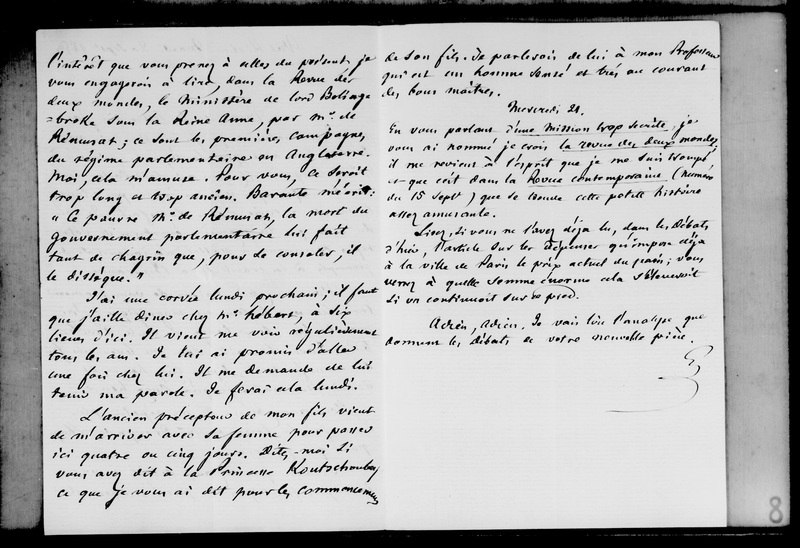 l'intérêt que vous prenez à celles du présent, je
vous engagerois à lire, dans la Revue des
deux mondes, le Ministère de lord Boling=
=broke sous la Reine Anne, par Mr. de
Rémusat; ce sont les premières campagnes
du régime parlementaire en Angleterre.
Moi, cela m'amuse. Pour vous, ce seroit
trop long et trop ancien. Barante m'écrit:
"Ce pauvre Mr. de Rémusat, la mort du
gouvernement parlementaire lui fait
tant de chagrin que, pour se consoler, il
le dissèque."
J'ai une corvée lundi prochain; il faut
que j'aille diner chez Mr. hébert, à six
lieues d'ici. Il vient me voir régulièrement
tous les ans. Je lui ai promis d'aller
une fois chez lui. Il me demande de lui
tenir ma parole. Je ferai cela lundi.
L'ancien précepteur de mon fils vient
de m'arriver avec sa femme pour passer
ici quatre ou cinq jours. Dites-moi si
vous avez dit à la Princesse Koutschoubey
ce que je vous ai dit pour les commencemens
de son fils. Je parlerois de lui à mon Professeur
qui est un homme sensé et très au courant
des bons maîtres.
Mercredi 24.
En vous parlant d'une mission trop secrète, je
vous ai nommé, je crois, la revue des deux mondes;
il me revient à l'esprit que je me suis trompé
et que c'est dans la Revue contemporaine (numéro
du 15 Sept) que se trouve cette petite histoire
assez amusante.
Lisez, si vous ne l'avez déjà lu, dans les Débats
d'hier, l'article sur les dépenses qu'impose déjà
à la ville de Paris le prix actuel du pain; vous
verrez à quelle somme énorme cela s'élèveroit
si on continuoit sur ce pied.
Adieu, Adieu. Je vais lire l'analyse que
donnent les Débats de votre nouvelle pièce.
G
8